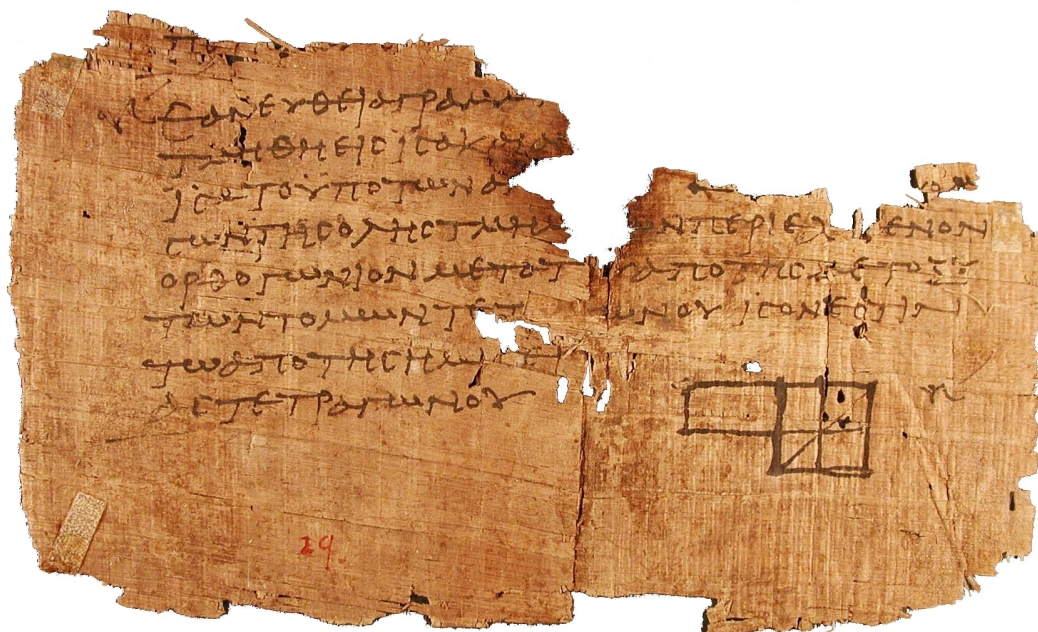 ΕΑΝΕΥΘΕΙΑΓΡΑΜΜ
ΤΜΗΘΗΕΙСΙСΑΚΑΙΑΝ
ΙСΑΤΟΫΠΟΤΩΝΑ
СΩΝΤΗСΟΛΗСΤΜΗΜ ΩΝΠΕΡΙΕΧ ΜΕΝΟΝ
ΟΡΘΟΓΩΝΙΟΝΜΕΤΑΤ ΑΠΟΤΗСΜΕΤΟΞΥ
ΤΩΝΤΟΜΩΝΤΕΤ ΩΝΟΥΙСΟΝΕСΤΙΝ
ΤΩΑΠΟΤΗСΗΜΙСΕΙ
ΑСΤΕΤΡΑΓΩΝΟΥ
29